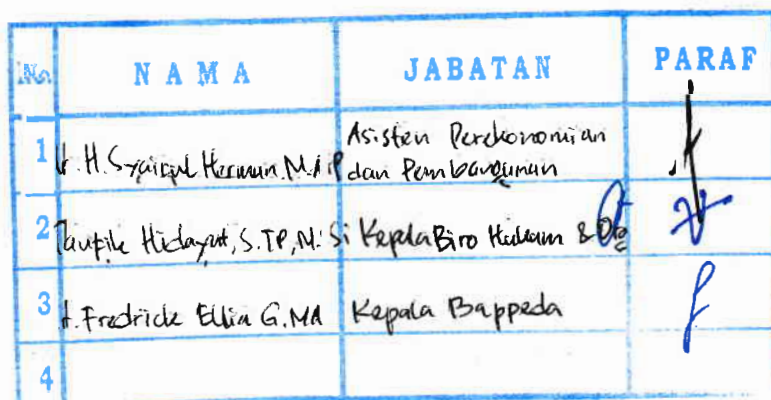 No. NAMA JABATAN PARAF
1 Ir. H. Syaiful Herman, M.AP Asisten Perekonomian
dan Pembangunan
2 Taufik Hidayat, S.TP, M.Si Kepala Biro Hukum & Org
3 Ir. Fredrick Ellia G. MA Kepala Bappeda
4